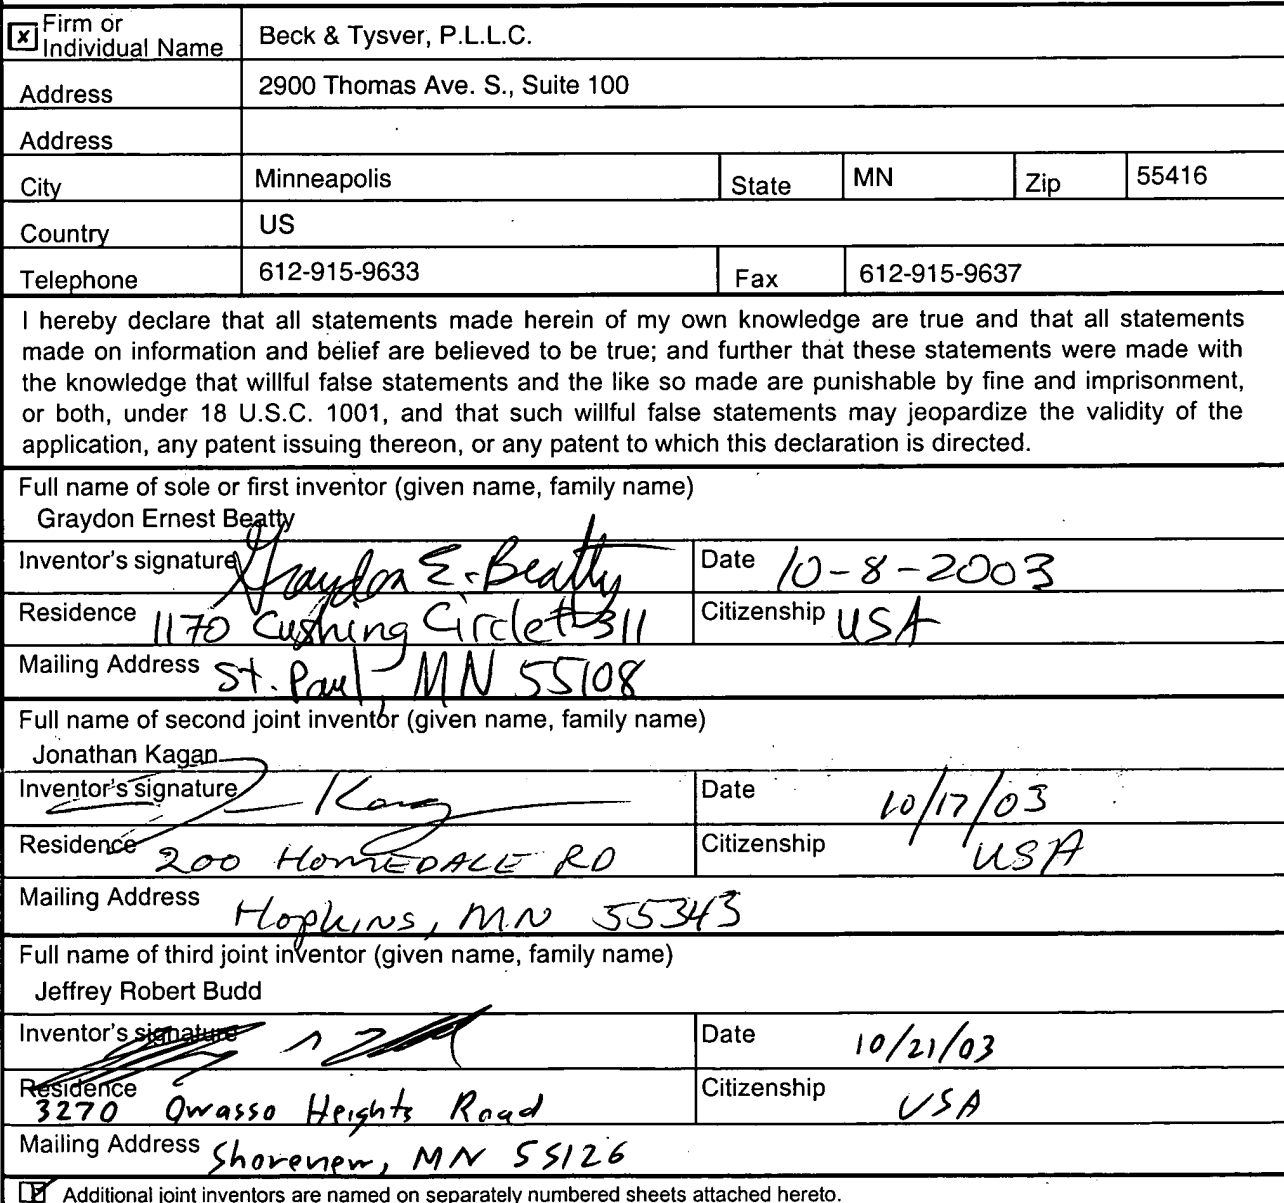 x Firm or Individual Name Beck & Tysver, P.L.L.C.
Address 2900 Thomas Ave. S., Suite 100
Address
City Minneapolis State MN Zip 55416
Country US
Telephone 612-915-9633 Fax 612-915-9637
I hereby declare that all statements made herein of my own knowledge are true and that all statements
made on information and belief are believed to be true; and further that these statements were made with
the knowledge that willful false statements and the like so made are punishable by fine and imprisonment,
or both, under 18 U.S.C. 1001, and that such willful false statements may jeopardize the validity of the
application, any patent issuing thereon, or any patent to which this declaration is directed.
Full name of sole or first inventor (given name, family name)
Graydon Ernest Beatty
Inventor's signature Graydon E. Beatty Date 10-8-2003
Residence 1170 Cushing Circle #311 Citizenship USA
Mailing Address St. Paul, MN 55108
Full name of second joint inventor (given name, family name)
Jonathan Kagan
Inventor's signature Date 10/17/03
Residence 200 HOMEDALE RD Citizenship USA
Mailing Address Hopkins, MN 55343
Full name of third joint inventor (given name, family name)
Jeffrey Robert Budd
Inventor's signature Date 10/21/03
Residence 3270 Owasso Heights Road Citizenship USA
Mailing Address Shoreview, MN 55126
Additional joint inventors are named on separately numbered sheets attached hereto.